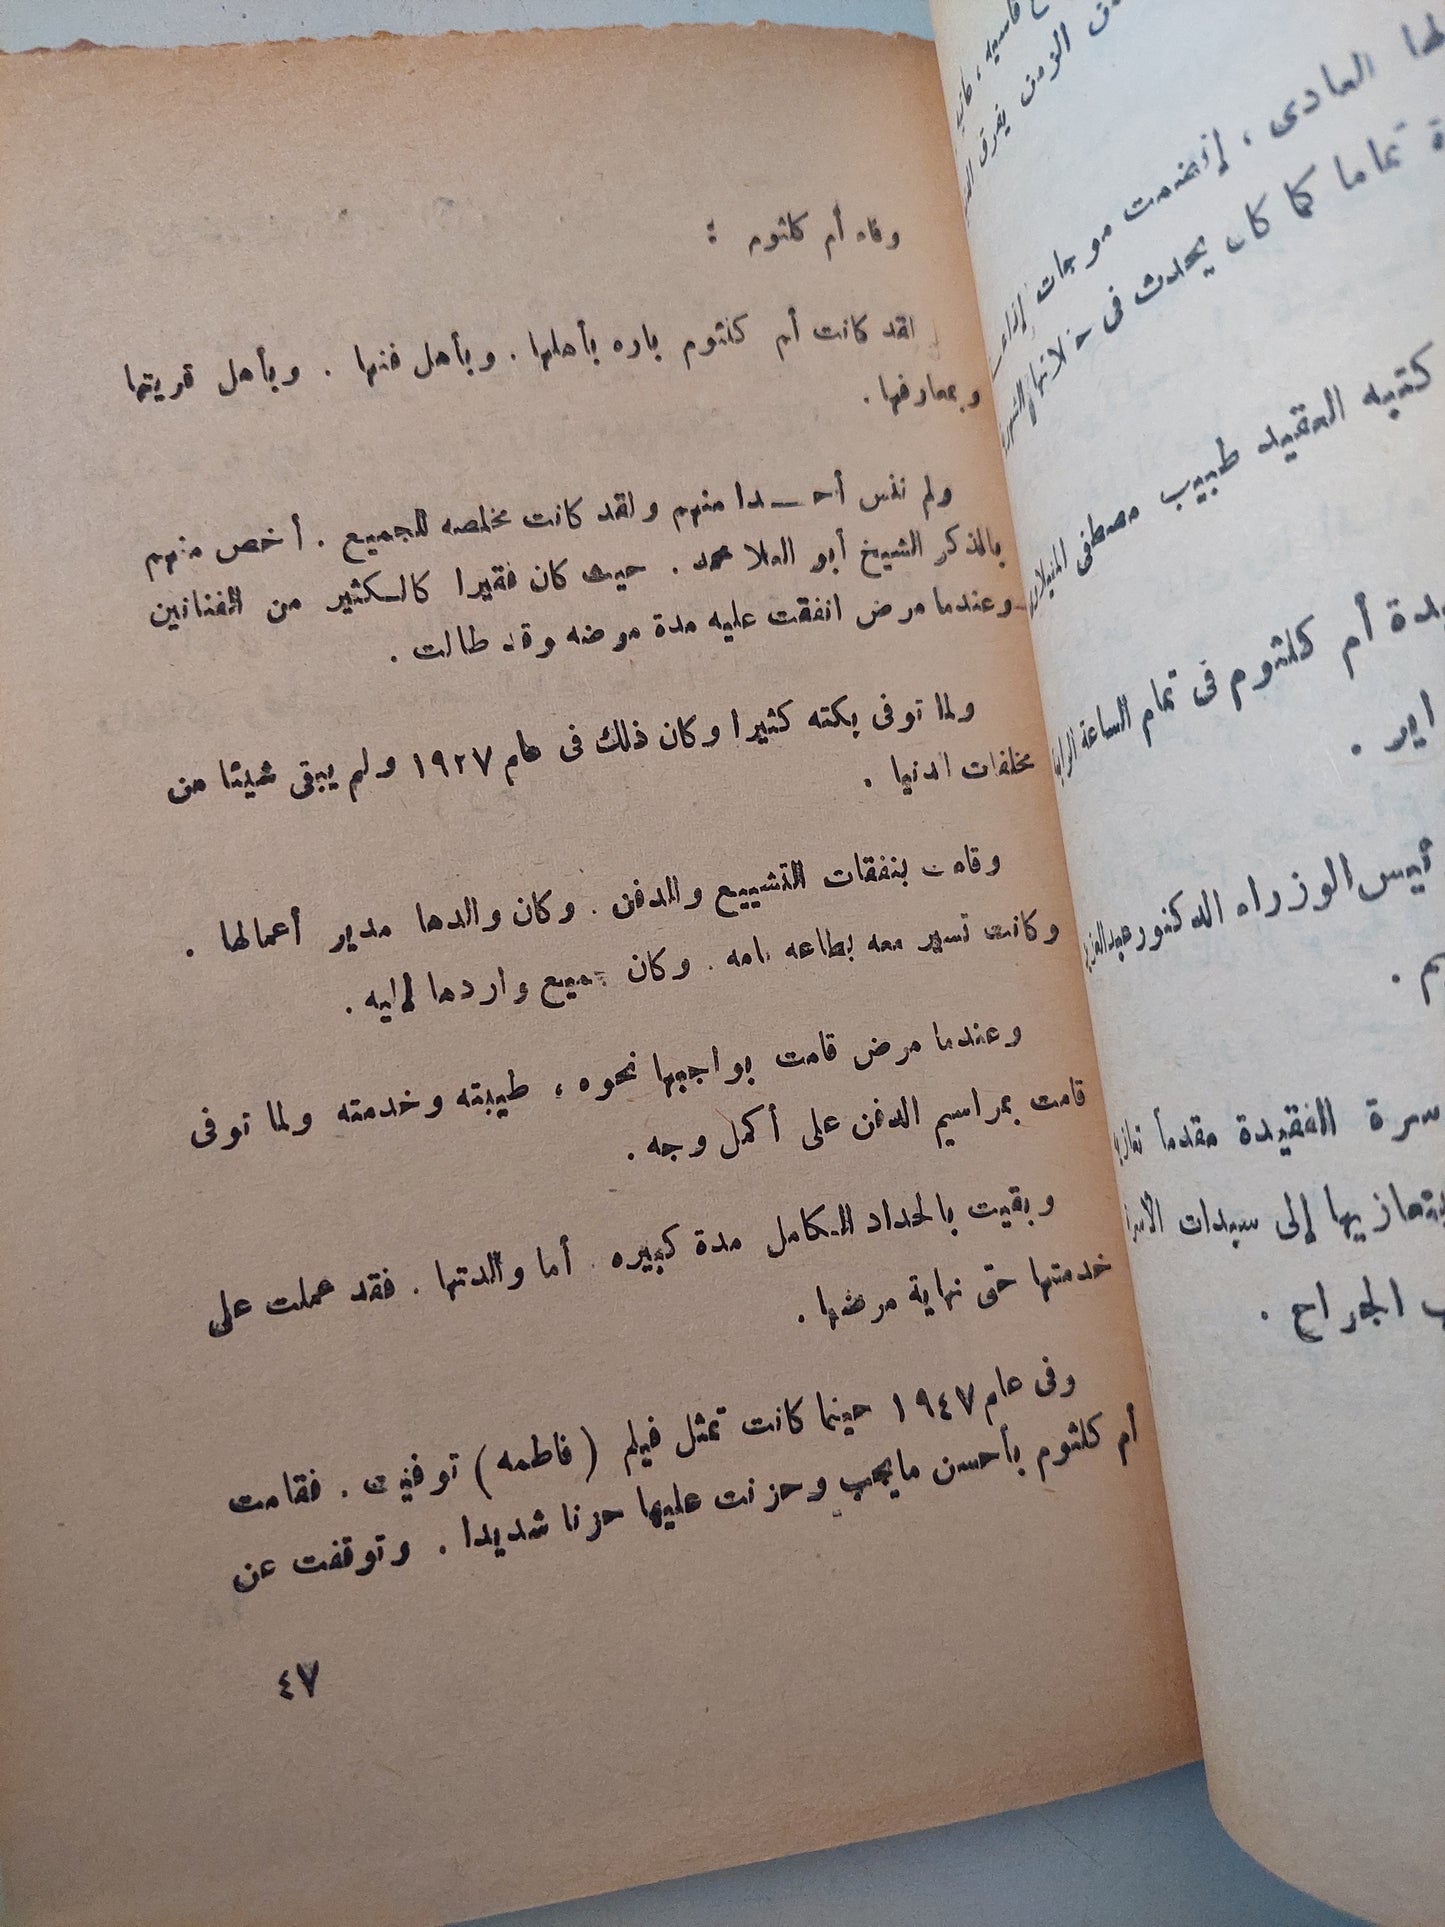 وفاء أم كلثوم :
لقد كانت أم كلثوم باره بأهلها . وبأهل فنها . وبأهل قريتها
وبمعارفها .
ولم تنس أحـدا منهم ولقد كانت مخلصه للجميع . أخص منهم
بالذكر الشيخ أبو العلا محمد . حيث كان فقيرا كالكثير من الفنانين
وعندما مرض انفقت عليه مدة مرضه وقد طالت .
ولما توفى بكته كثيرا وكان ذلك فى عام ١٩٢٧ ولم يبقى شيئا من
مخلفات الدنيا .
وقامت بنفقات التشييع والدفن . وكان والدها مدير أعمالها .
وكانت تسير معه بطاعه تامه . وكان جميع واردها إليه .
وعندما مرض قامت بواجبها نحوه ، طيبته وخدمته ولما توفى
قامت بمراسيم الدفن على أكمل وجه .
وبقيت بالحداد الكامل مدة كبيره . أما والدتها . فقد عملت على
خدمتها حتى نهاية مرضها .
وفى عام ١٩٤٧ حينما كانت تمثل فيلم (فاطمه) توفيت . فقامت
أم كلثوم بأحسن مايجب وحزنت عليها حزنا شديدا . وتوقفت عن
٤٧
الزمن يفرق
العادى ، إنضمت موجات
تماما كما كان يحدث فى
كتبه العقيد طبيب مصطفى المنيلاوى
أم كلثوم فى تمام الساعة
اير .
الوزراء الدكتور
م .
الفقيدة مقدماً
إلى سيدات
الجراح .